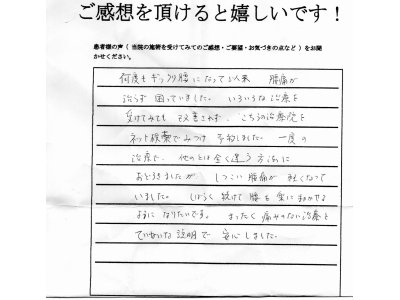 ご感想を頂けると嬉しいです！
患者様の声（当院の施術を受けてみてのご感想・ご要望・お気づきの点など）をお聞
かせください。
何度もギックリ腰になって以来 腰痛が
治らず 困っていました。いろいろな治療を
受けてみても 改善されず、こちらの治療院を
ネット検索でみつけ 予約しました。一度の
治療で、他のとは全く違う方法に
おどろきましたが しつこい腰痛が 軽くなって
いました。しばらく続けて 腰を楽に動かせる
ようになりたいです。まったく痛みのない治療と
ていねいな説明で 安心しました。